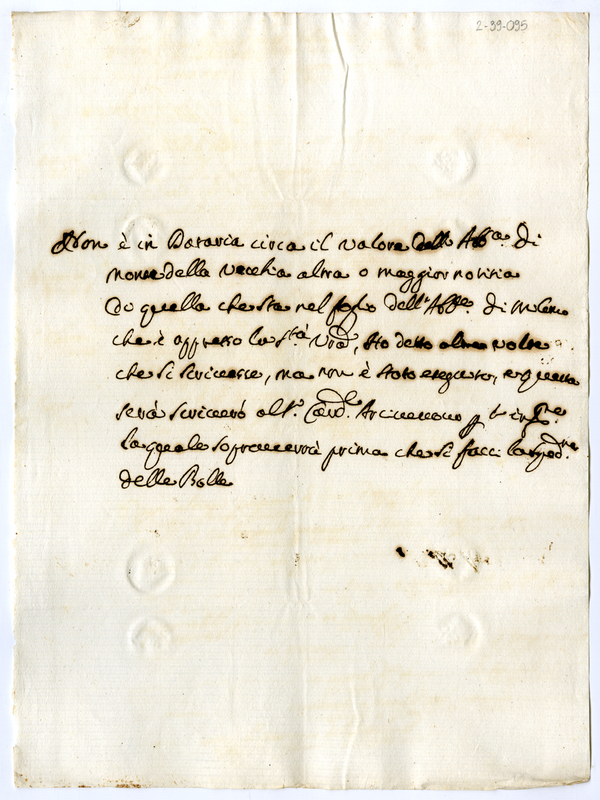 2-39-095
Non è in Dataria circa il valore dell' Abb.a di
della vecchia altra o maggior notitia
di quella che sta nel foglio dell' Abb.e di Milano
che è appresso la S.tà V.ra, Ho detto altre volte
che si scrivesse, ma non è stato eseguito, e questa
sera scriverò al S.r Card. Arcivescovo p
la quale sopraverrà prima che si facci la sped.ne
delle Bolle